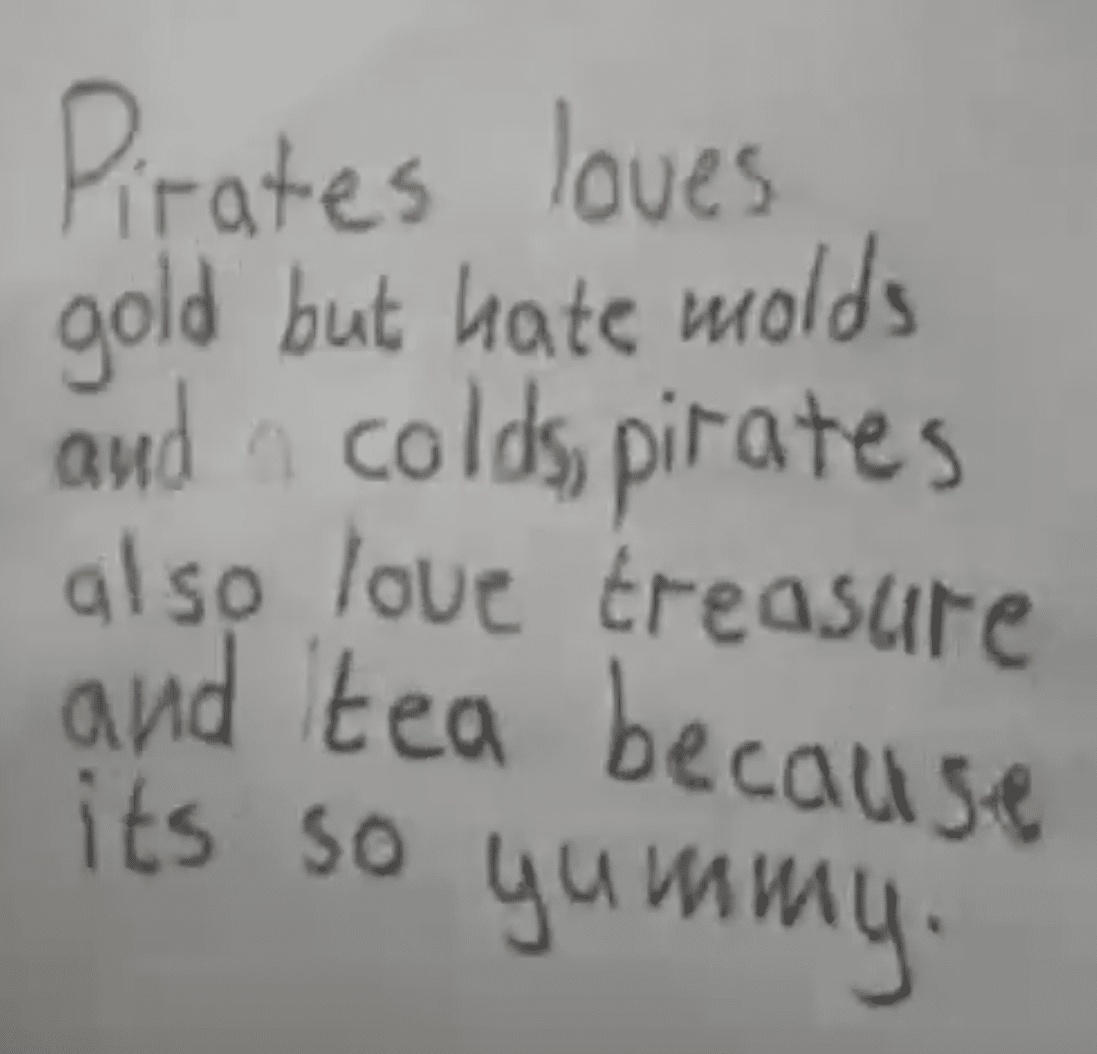 Pirates loves
gold but hate molds
and colds, pirates
also love treasure
and tea because
its so yummy.